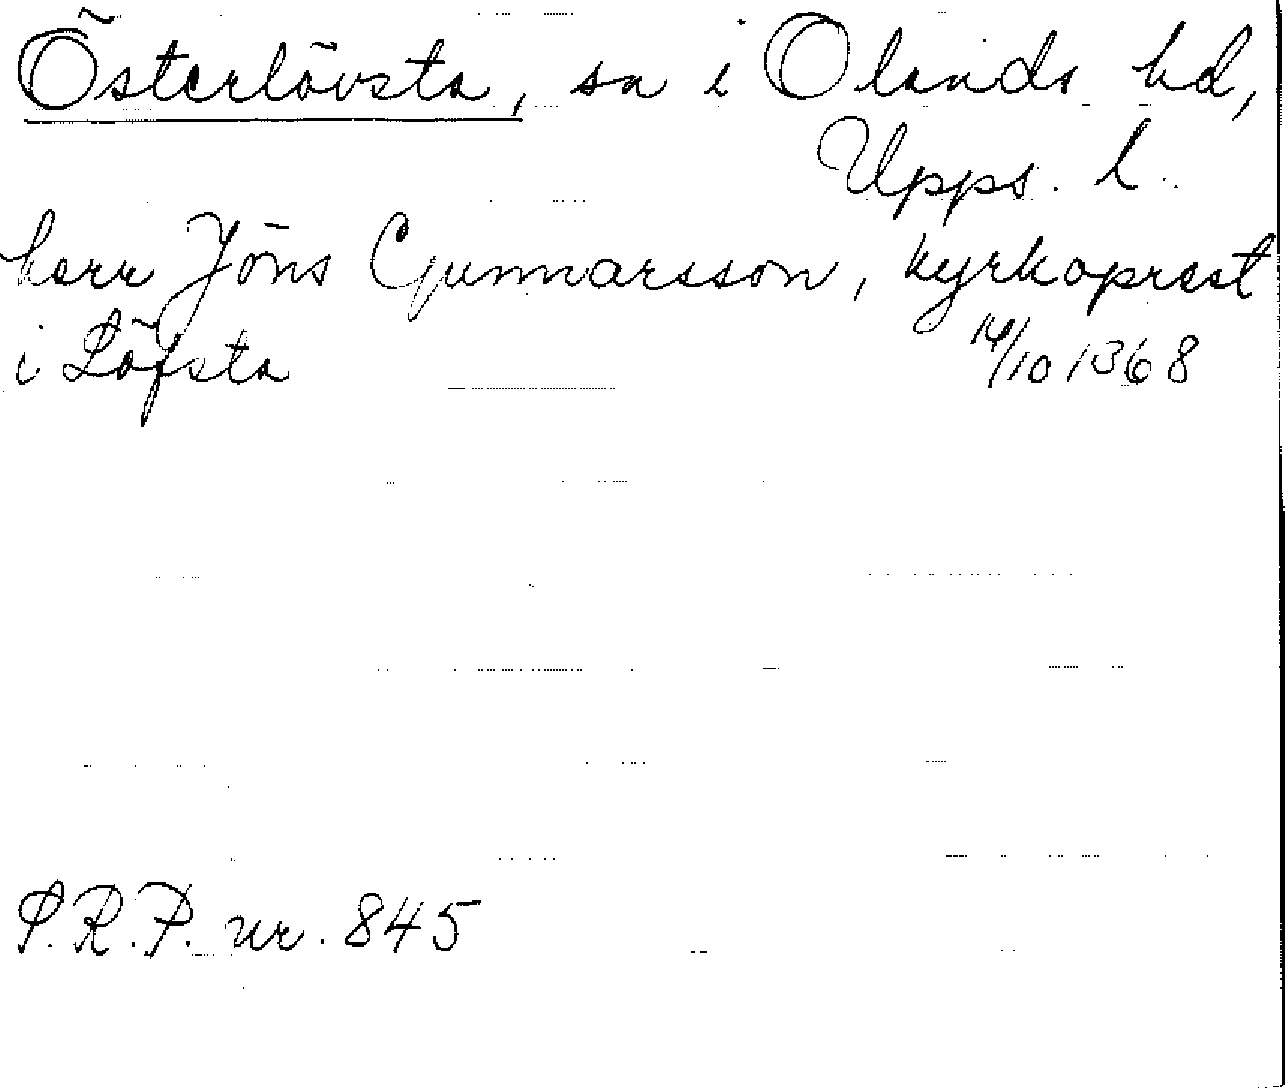 Österlövsta, sn i Olands hd,
Upps. l.
herr Jöns Gunnarsson, kyrkoprest
i Löfsta 14/10 1368
S.R.P. nr. 845